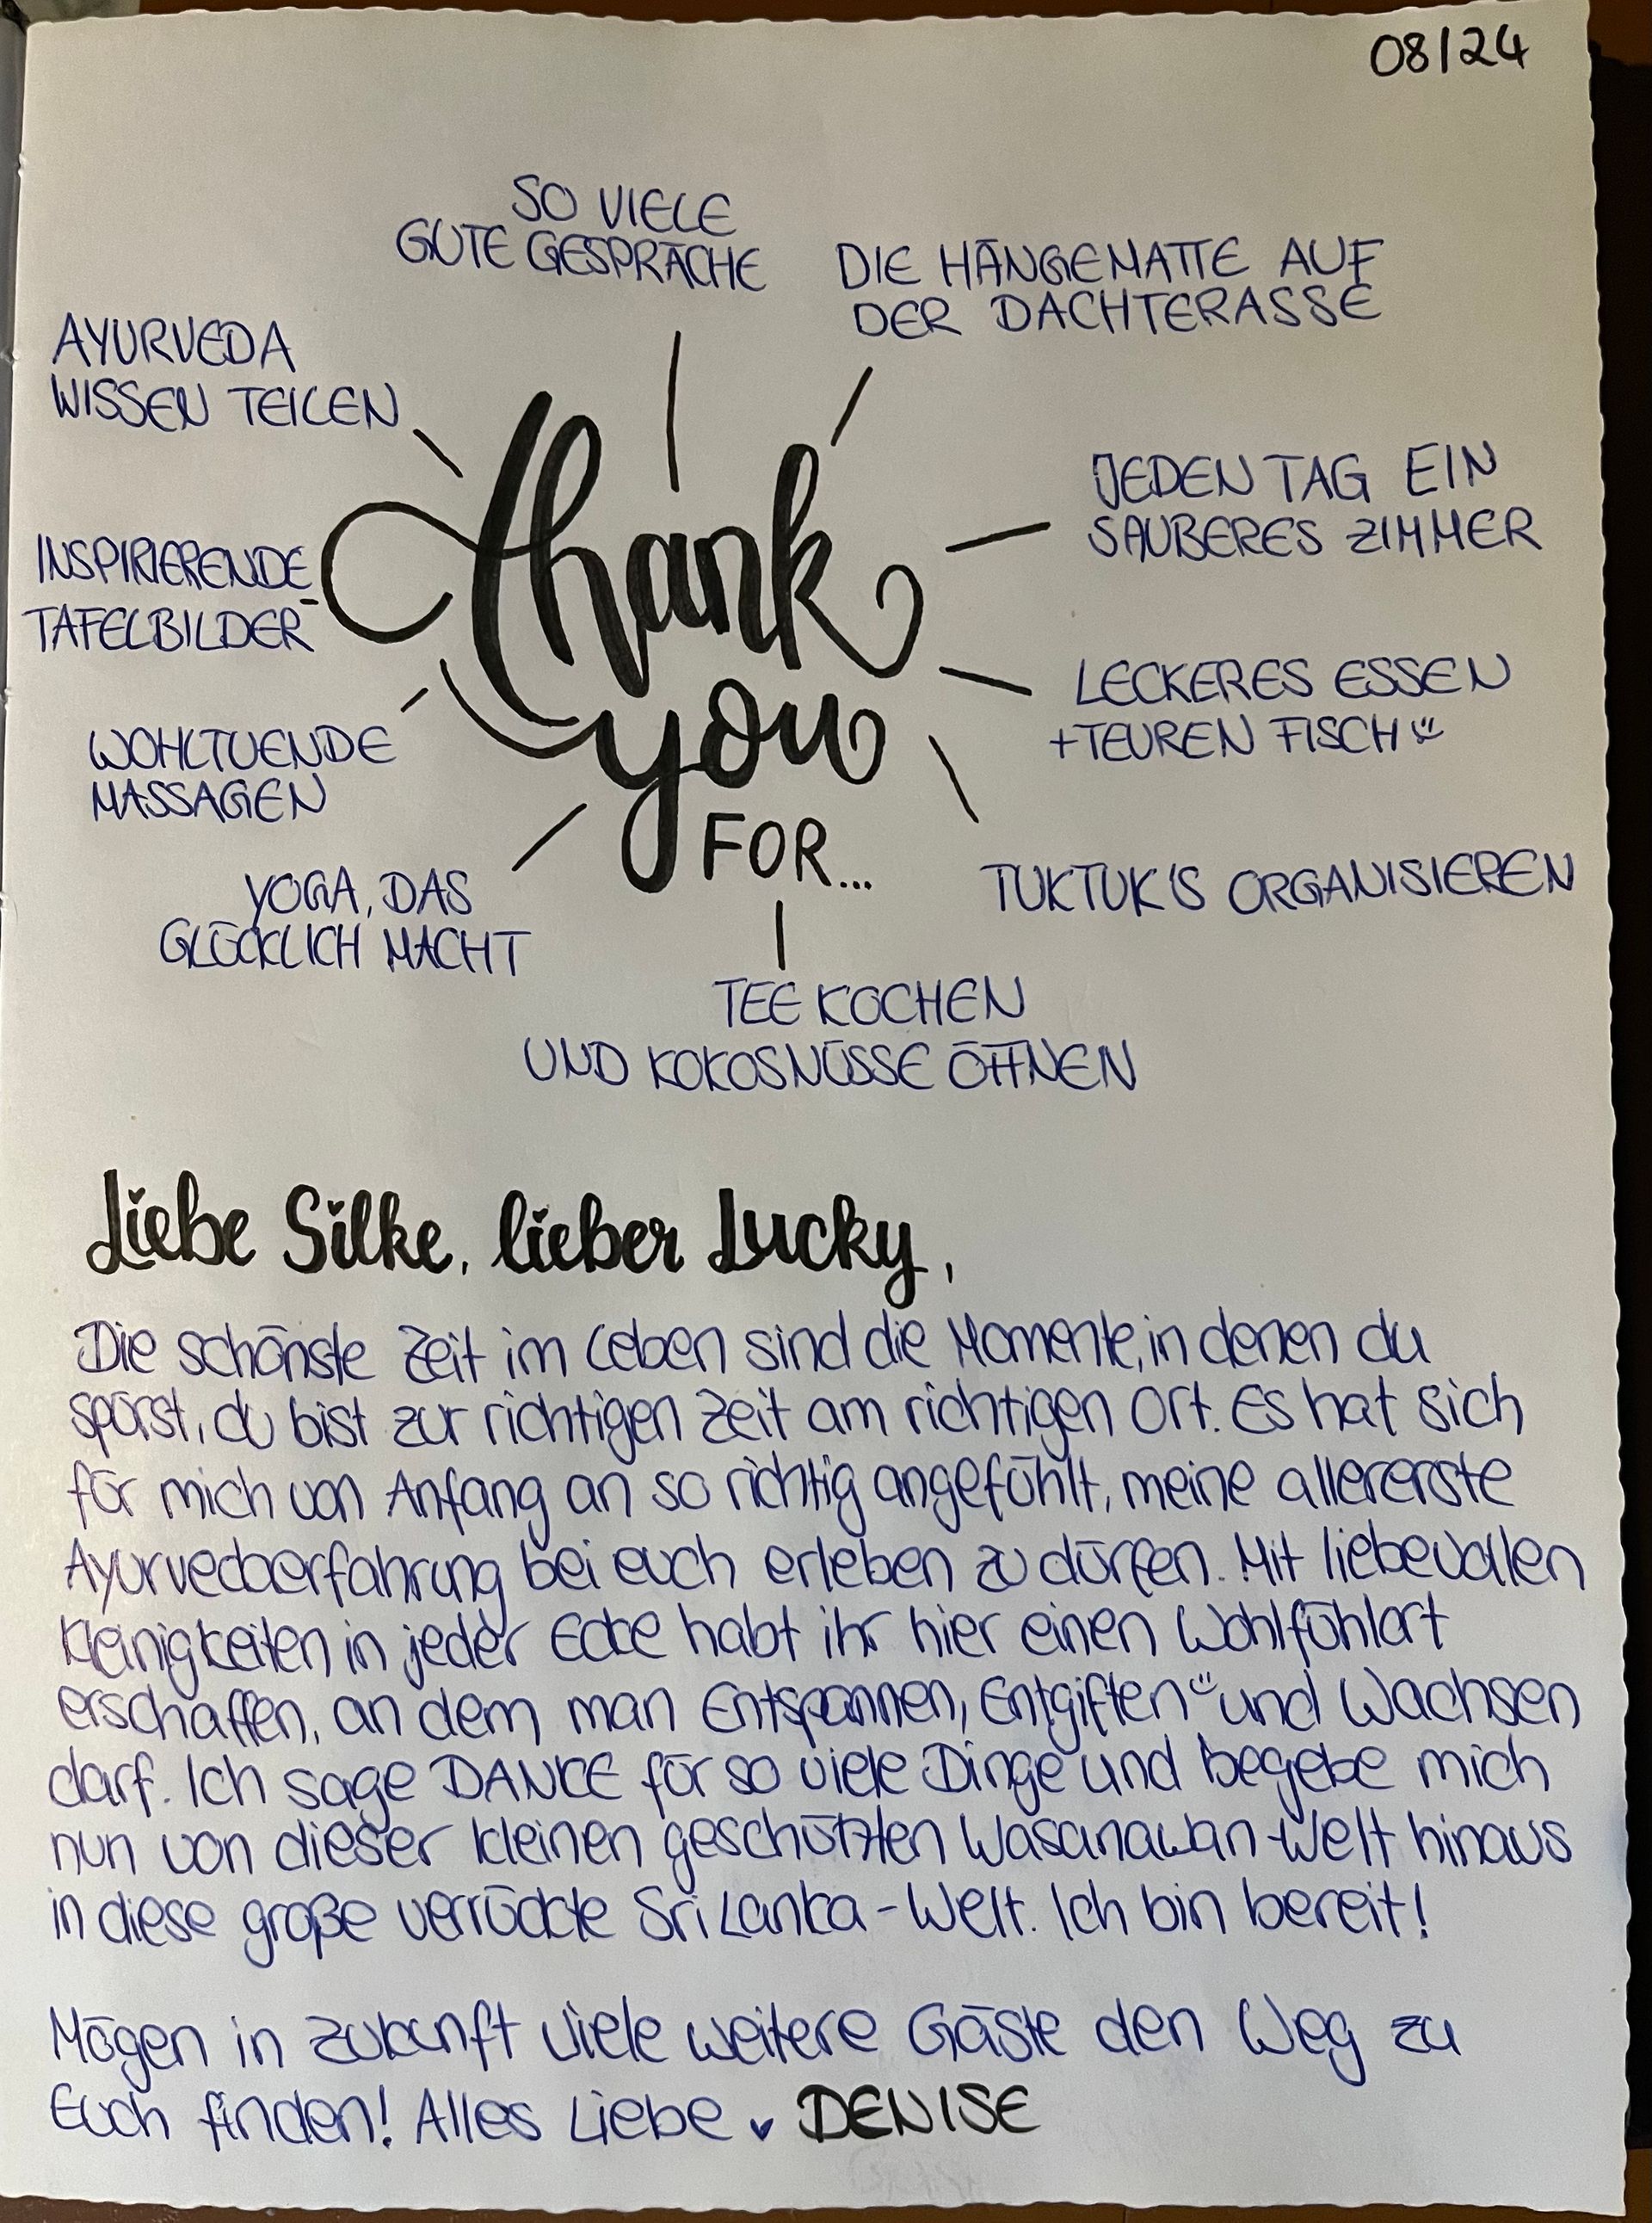 08/24
SO VIELE
GUTE GESPRÄCHE
DIE HÄNGEMATTE AUF
DER DACHTERASSE
AYURVEDA
WISSEN TEILEN
JEDEN TAG EIN
SAUBERES ZIMMER
INSPIRIERENDE
TAFELBILDER
thank
you
FOR...
LECKERES ESSEN
+TEUREN FISCH
WOHLTUENDE
MASSAGEN
TUKTUK'S ORGANISIEREN
YOGA, DAS
GLÜCKLICH MACHT
TEE KOCHEN
UND KOKOSNÜSSE ÖFFNEN
Liebe Silke, lieber Lucky,
Die schönste Zeit im Leben sind die Momente, in denen du
spürst, du bist zur richtigen Zeit am richtigen Ort. Es hat sich
für mich von Anfang an so richtig angefühlt, meine allererste
Ayurvedaerfahrung bei euch erleben zu dürfen. Mit liebevollen
Kleinigkeiten in jeder Ecke habt ihr hier einen Wohlfühlort
erschaffen, an dem man Entspannen, Entgiften und Wachsen
darf. Ich sage DANKE für so viele Dinge und begebe mich
nun von dieser kleinen geschützten Wasanawan-Welt hinaus
in diese große verrückte Sri Lanka-Welt. Ich bin bereit!
Mögen in Zukunft viele weitere Gäste den Weg zu
Euch finden! Alles Liebe ♥ DENISE